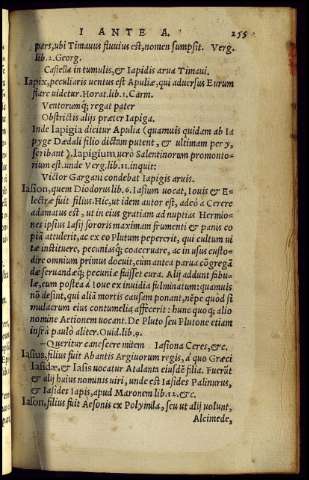 I ANTE A. 255
pars, ubi Timauus fluuius est, nomen sumpsit. Verg.
lib. 2. Georg.
Castella in tumulis, & Iapidis arua Timaui.
Iapix, peculiaris uentus est Apuliæ, qui aduersus Eurum
flare uidetur. Horat. lib. 1. Carm.
Ventorumq; regat pater
Obstrictis alijs præter Iapiga.
Inde Iapigia dicitur Apulia (quamuis quidam ab Ia
pyge Dædali filio dictum putent, & ultimam per y,
scribant) Iapigium uero Salentinorum promonto-
rium est. unde Verg. lib. 11. inquit:
Victor Gargani condebat Iapigis aruis.
Iasion, quem Diodorus lib. 6. Iasium uocat, Iouis & E-
lectræ fuit filius. Hic, ut idem autor est, adeò a Cerere
adamatus est, ut in eius gratiam ad nuptias Hermio-
nes ipsius Iasij sororis maximam frumenti & panis co
piã attulerit, ac ex eo Plutum pepererit, qui cultum ui
tæ instituere, pecuniasq; coaceruare, ac in usus custo-
dire omnium primus docuit, cum antea parua cõgregã
dæ seruandæq; pecuniæ fuisset cura. Alij addunt fabu-
læ, eum postea à Ioue ex inuidia fulminatum: quamuis
nõ desint, qui aliã mortis causam ponant, nẽpe quòd si
mulacrum eius contumelia affecerit: hunc quoq; alio
nomine Aetionem uocant. De Pluto seu Plutone etiam
infrà paulò aliter. Ouid. lib. 9.
—Queritur canescere mitem Iasiona Ceres, &c.
Iasius, filius fuit Abantis Argiuorum regis, à quo Græci
Iasidæ, & Iasis uocatur Atalanta eiusdẽ filia. Fuerũt
& alij huius nominis uiri, unde est Iasides Palinurus,
& Iasides Iapis, apud Maronem lib. 12. &c.
Iason, filius fuit Aesonis ex Polymila, seu ut alij uolunt,
Alcimede,